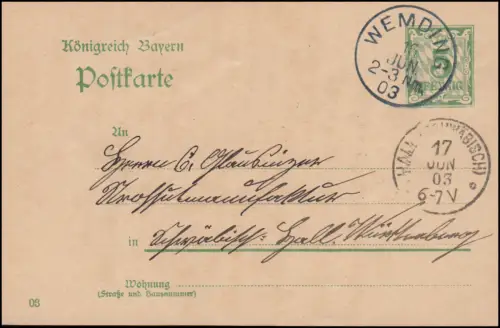 Königreich Bayern
Postkarte
WEMDING
JUN
2-3 Nm.
03
5
PFENNIG
An
Herrn C.
HALL (SCHWÄBISCH)
17
JUN
03
6-7 V
in Schwäbisch-Hall. Württemberg
Wohnung
(Straße und Hausnummer)
03